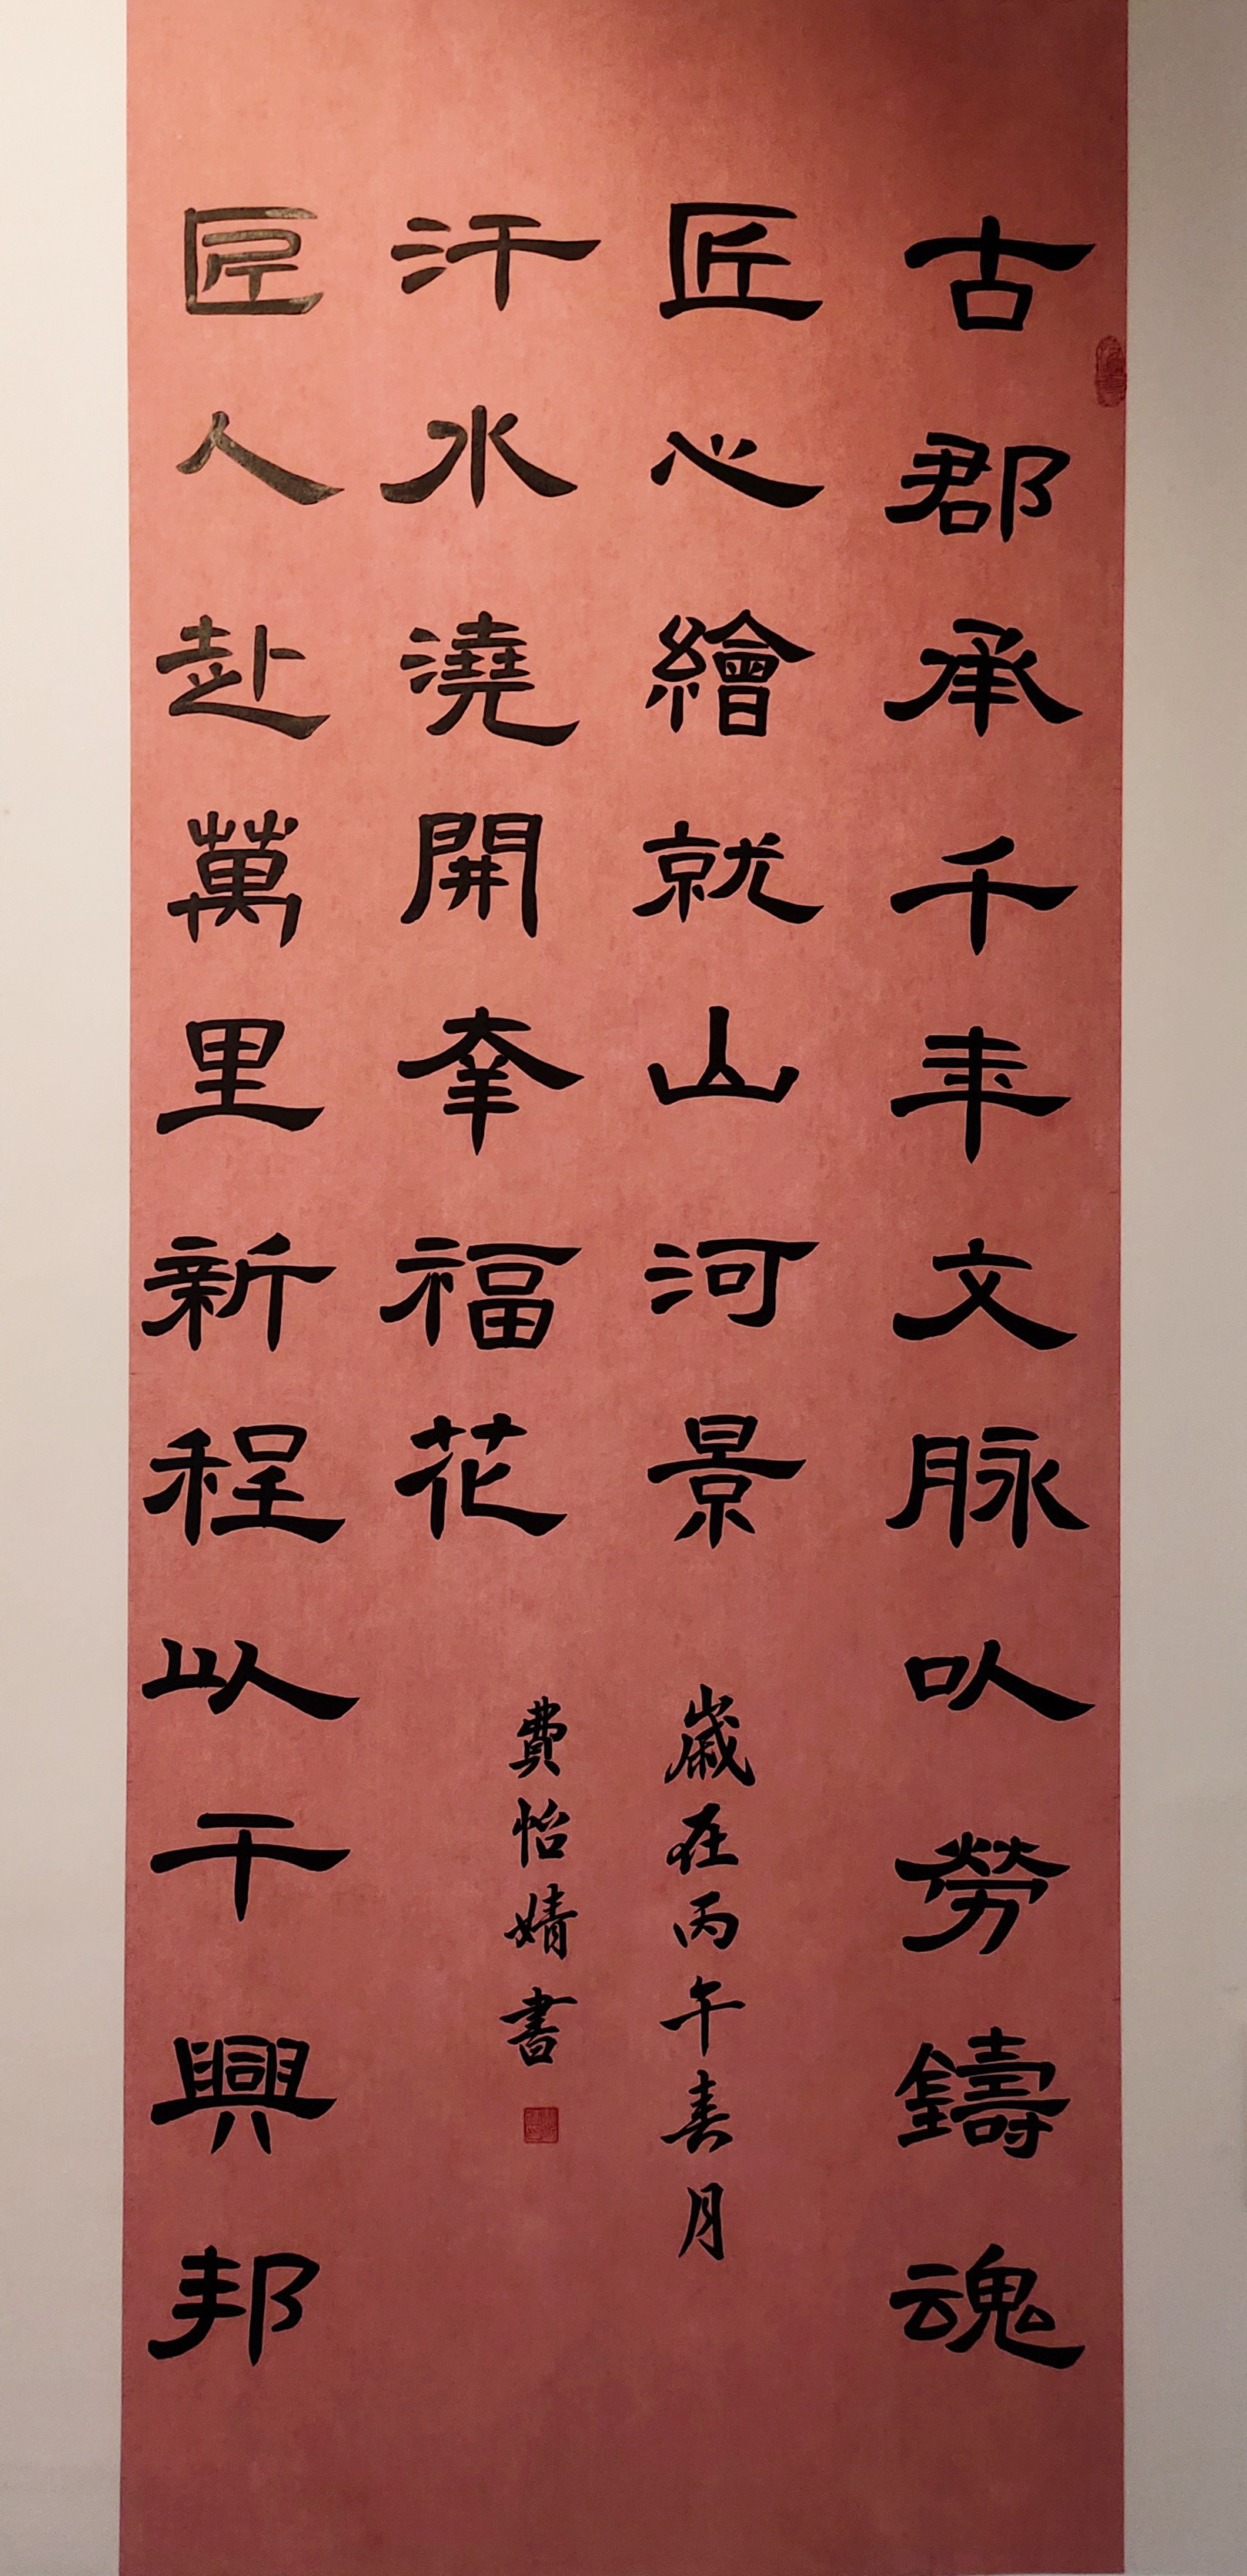 古郡承千年文脉以勞鑄魂
匠心繪就山河景
歲在丙午春月
匠人赴萬里新程以干興邦
汗水澆開幸福花
費怡婧書